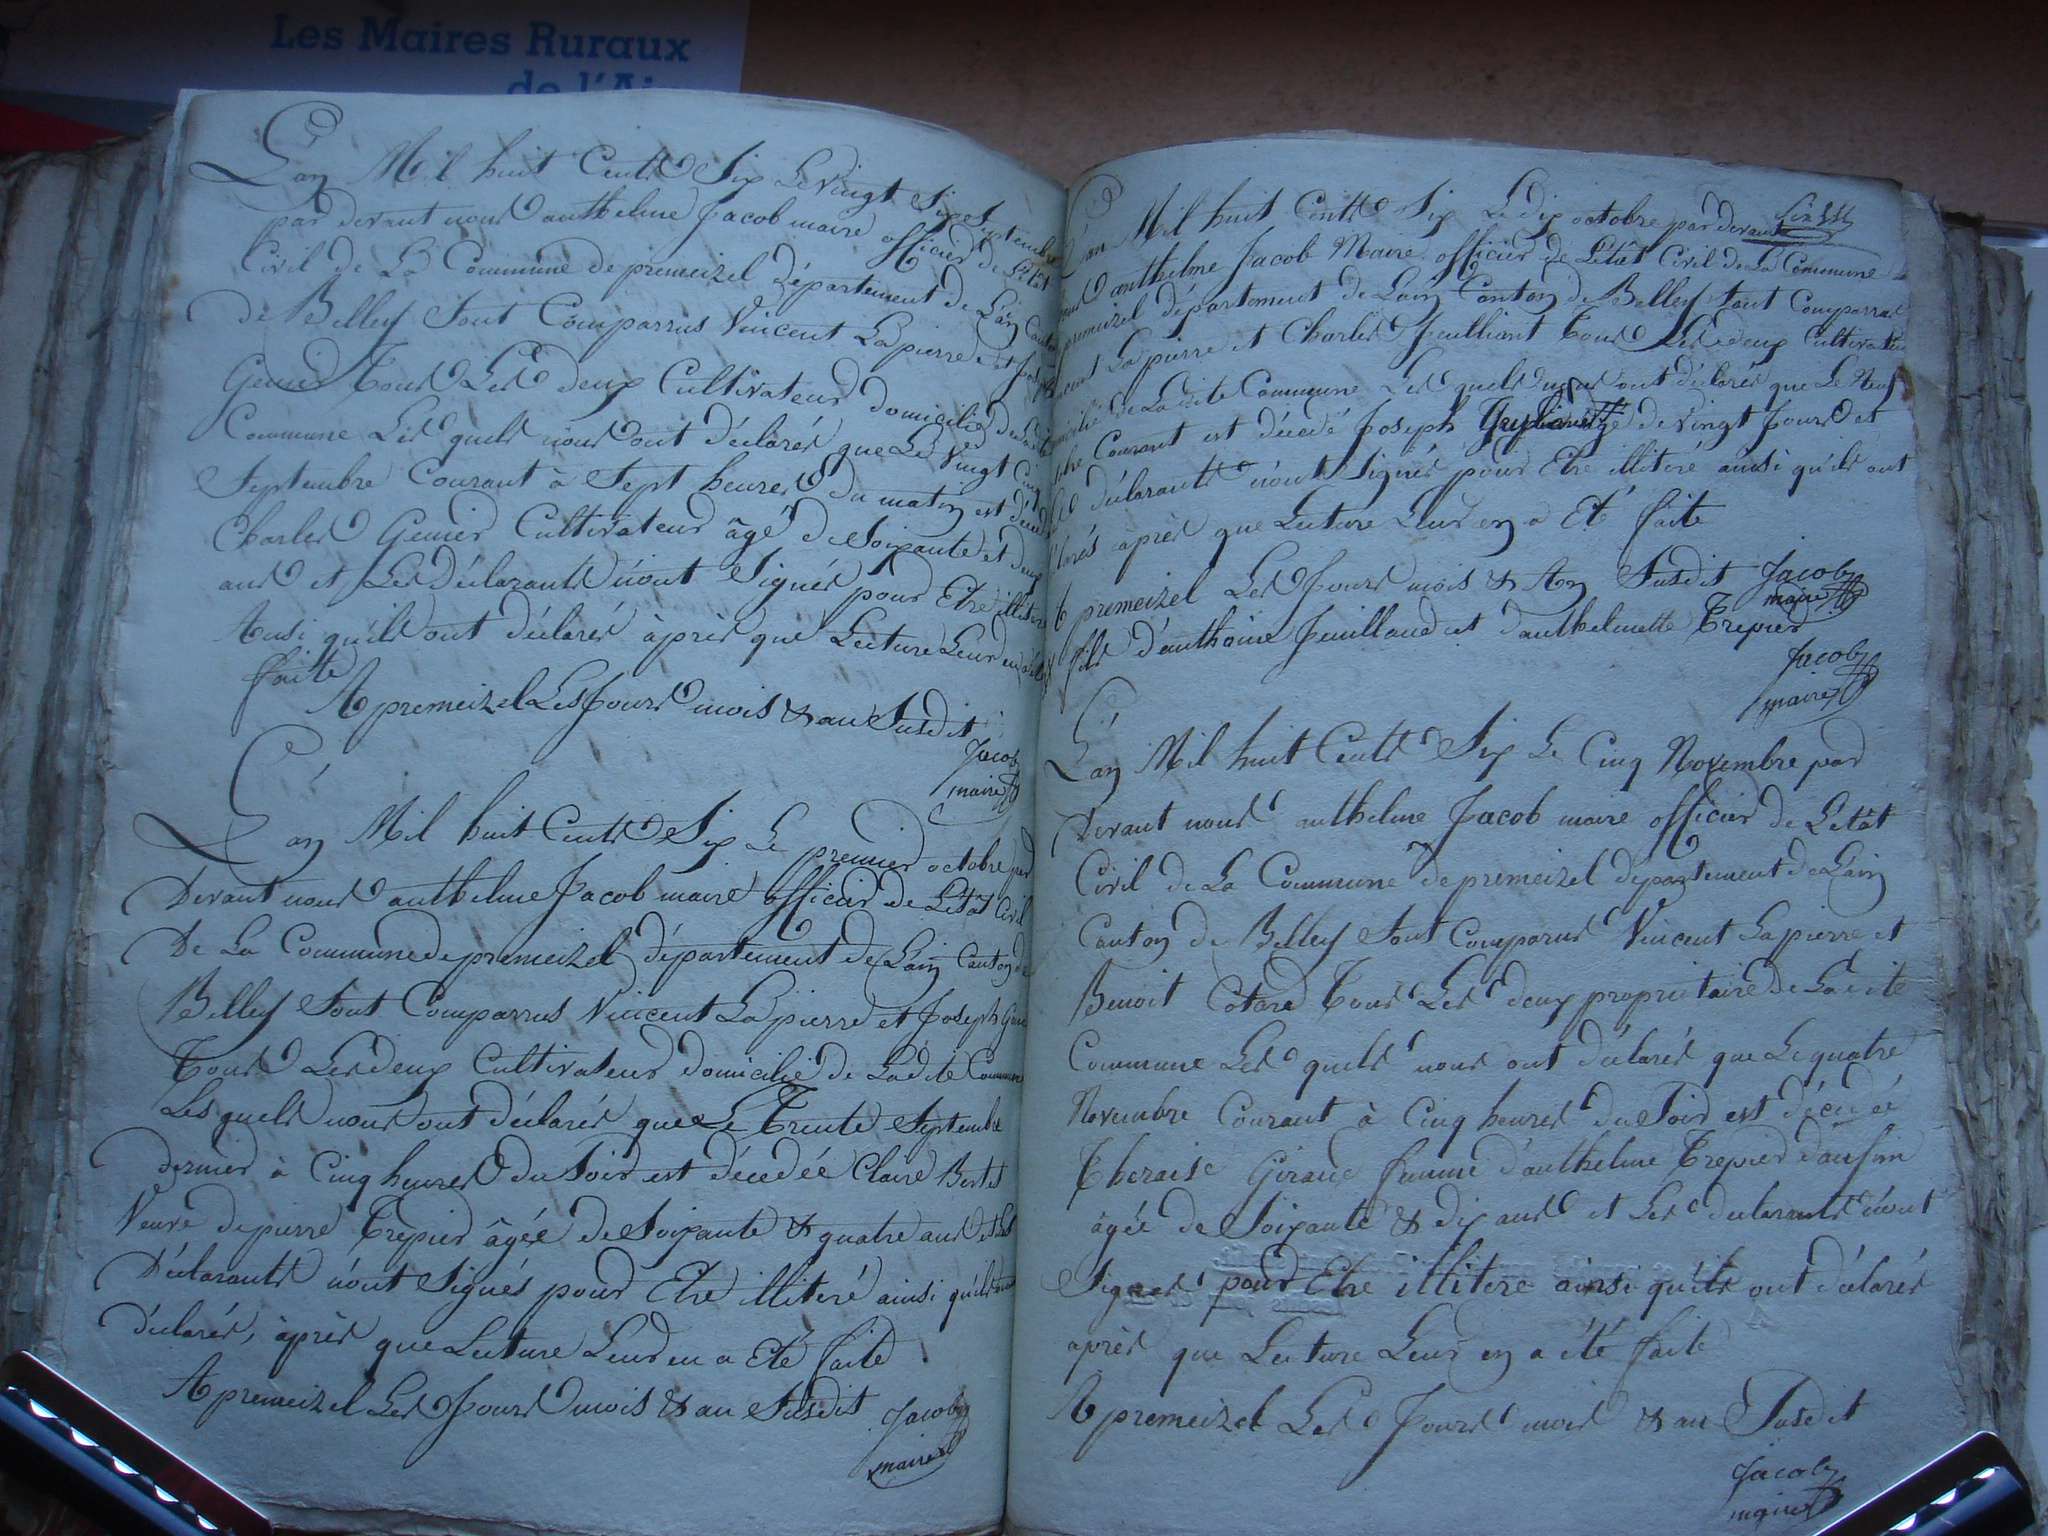 Les Maires Ruraux
de l'Ain
L'an Mil huit Cents Six Le vingt Six Septembre
par devant nous anthelme Jacob maire officier de L'état
Civil de La Commune de premeizel département de L'ain Canton
de Belley Sont Comparrus Vincent Lapierre et Joseph
Genier Tous Les deux Cultivateurs domicilié de La dite
Commune Les quels nous ont déclarés que Le Vingt Cinq
Septembre Courant à Sept heures du matin est décédé
Charles Genier Cultivateur âgé de Soixante et deux
ans et Les déclarants n'ont Signés pour Etre illitéré
Ainsi qu'ils ont déclarés àprès que Lecture Leurs en a été
faite
A premeizel Les Jours mois & an Susdit
Jacob
maire
L'an Mil huit Cents Six Le premier octobre par
Devant nous anthelme Jacob maire officier de L'etât Civil
De La Commune de premeizel département de L'ain Canton de
Belley Sont Comparrus Vincent Lapierre et Joseph
Tous Les deux Cultivateurs domicilié de La dite Commune
Les quels nous ont déclarés que Le Trente Septembre
dernier à Cinq heures du Soir est décedée Claire
Veuve de pierre Trepier âgée de Soixante & quatre ans et Les
Déclarants n'ont Signés pour Etre illitéré ainsi qu'ils
déclarés, àprès que Lecture Leurs en a Eté faite
A premeizel Les Jours mois & an Susdit
Jacob
maire
L'an Mil huit Cents Six Le dix octobre par devant
nous anthelme Jacob Maire officier de L'étât Civil de La Commune
premeizel département de L'ain Canton de Belley Sont Comparrus
Vincent Lapierre et Charles Juilliant Tous Les deux Cultivateur
domicilié de La dite Commune Les quels nous ont déclarés que Le Neuf
Courant est décédé Joseph âgé de vingt Jours et
Les déclarants n'ont Signés pour Etre illitéré ainsi qu'ils ont
àprès que Lecture Leurs en a Eté faite
A premeizel Les Jours mois & An Susdit Jacob
maire
fils d'anthoine Juilland et d'anthelmette Trepier
Jacob
maire
L'an Mil huit Cents Six Le Cinq Novembre par
Devant nous anthelme Jacob maire officier de L'etât
Civil de La Commune de premeizel département de L'ain
Canton de Belley Sont Comparus Vincent Lapierre et
Benoit Tous Les deux propriétaire de La dite
Commune Les quels nous ont déclarés que Le quatre
Novembre Courant à Cinq heures du Soir est décédée
Theraise Giraud femme d'anthelme Trepier
âgée de Soixante & dix ans et Les declarants n'ont
Signés pour Etre illitere ainsi qu'ils ont déclarés
après que Lecture Leurs en a été faite
A premeizel Les Jours mois & an Susdit
Jacob
maire